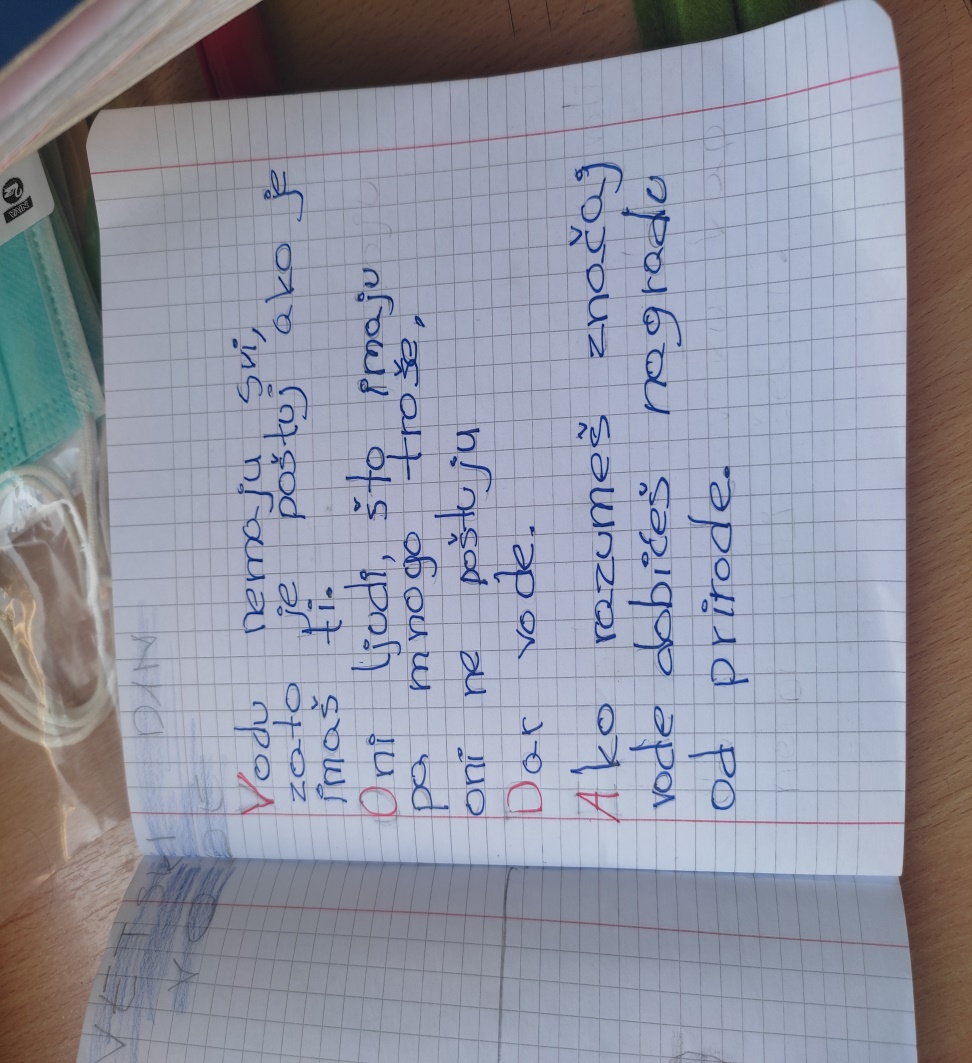 Vodu nemaju svi,
zato je poštuj ako je
imaš ti.
Oni ljudi, što imaju
pa mnogo troše,
oni ne poštuju
Dar vode.
Ako razumeš značaj
vode dobićeš nagradu
od prirode.
NIVA